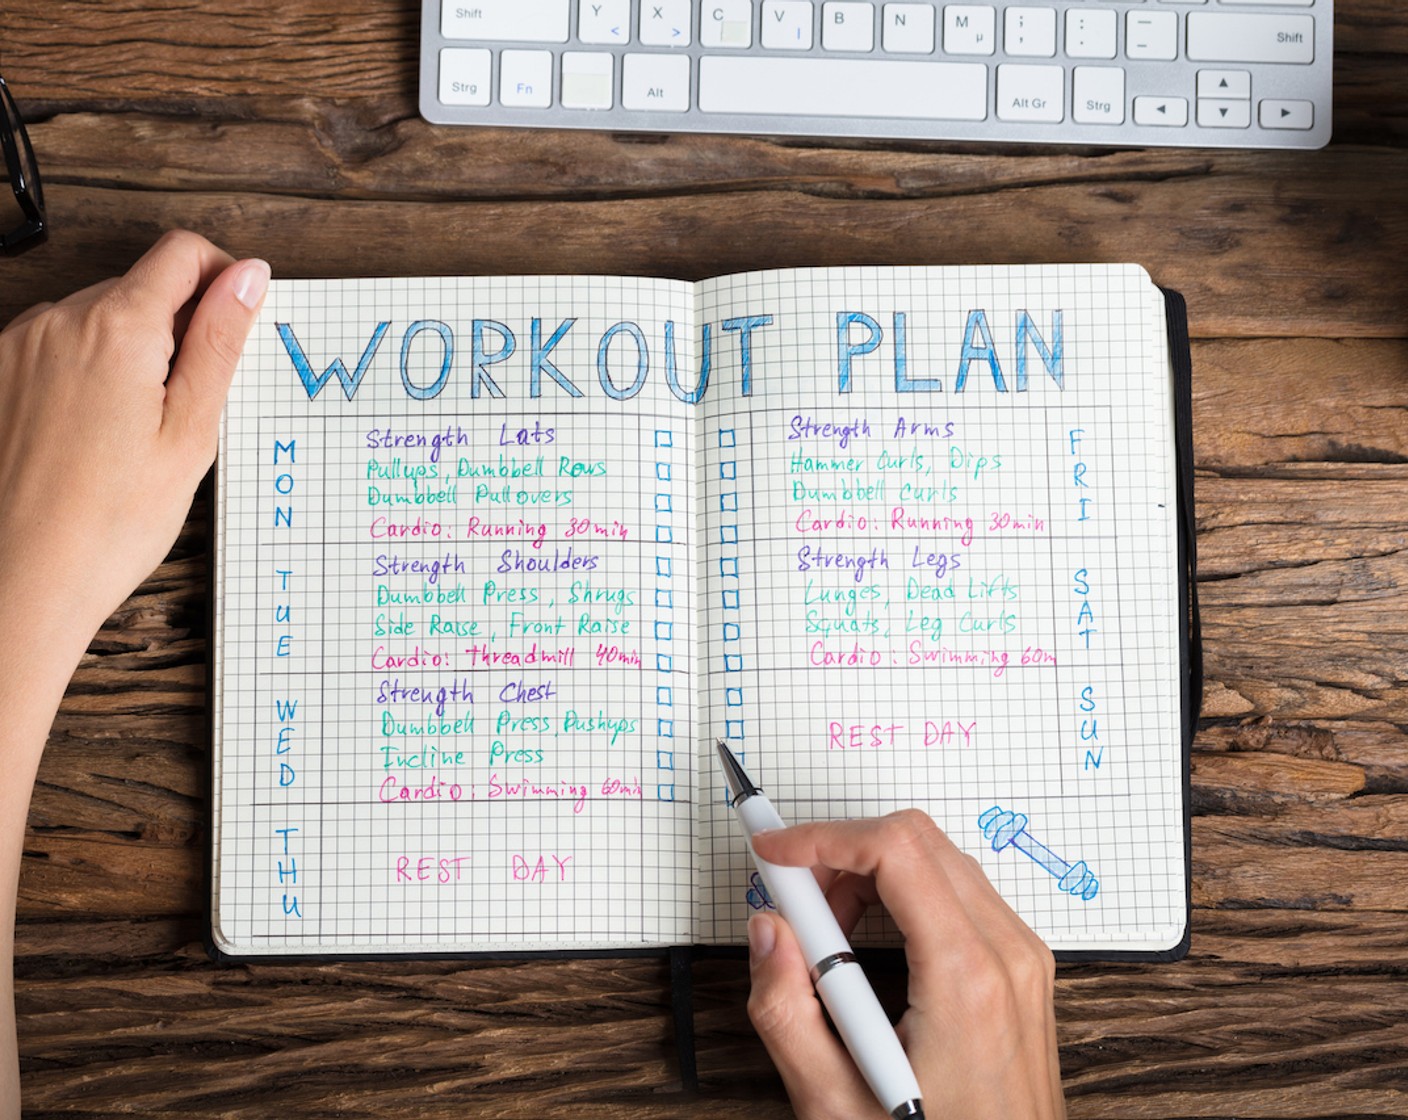 Shift Y X C V B N M ; : — Shift
< > | µ , . _
Strg Fn Alt Alt Gr Strg
WORKOUT PLAN
MON
Strength Lats
Pullups, Dumbbell Rows
Dumbbell Pullovers
Cardio: Running 30min
TUE
Strength Shoulders
Dumbbell Press, Shrugs
Side Raise, Front Raise
Cardio: Threadmill 40min
WED
Strength Chest
Dumbbell Press, Pushups
Incline Press
Cardio: Swimming 60min
THU
REST DAY
Strength Arms
Hammer Curls, Dips
Dumbbell Curls
Cardio: Running 30min
FRI
Strength Legs
Lunges, Dead Lifts
Squats, Leg Curls
Cardio: Swimming 60m
SAT
REST DAY
SUN